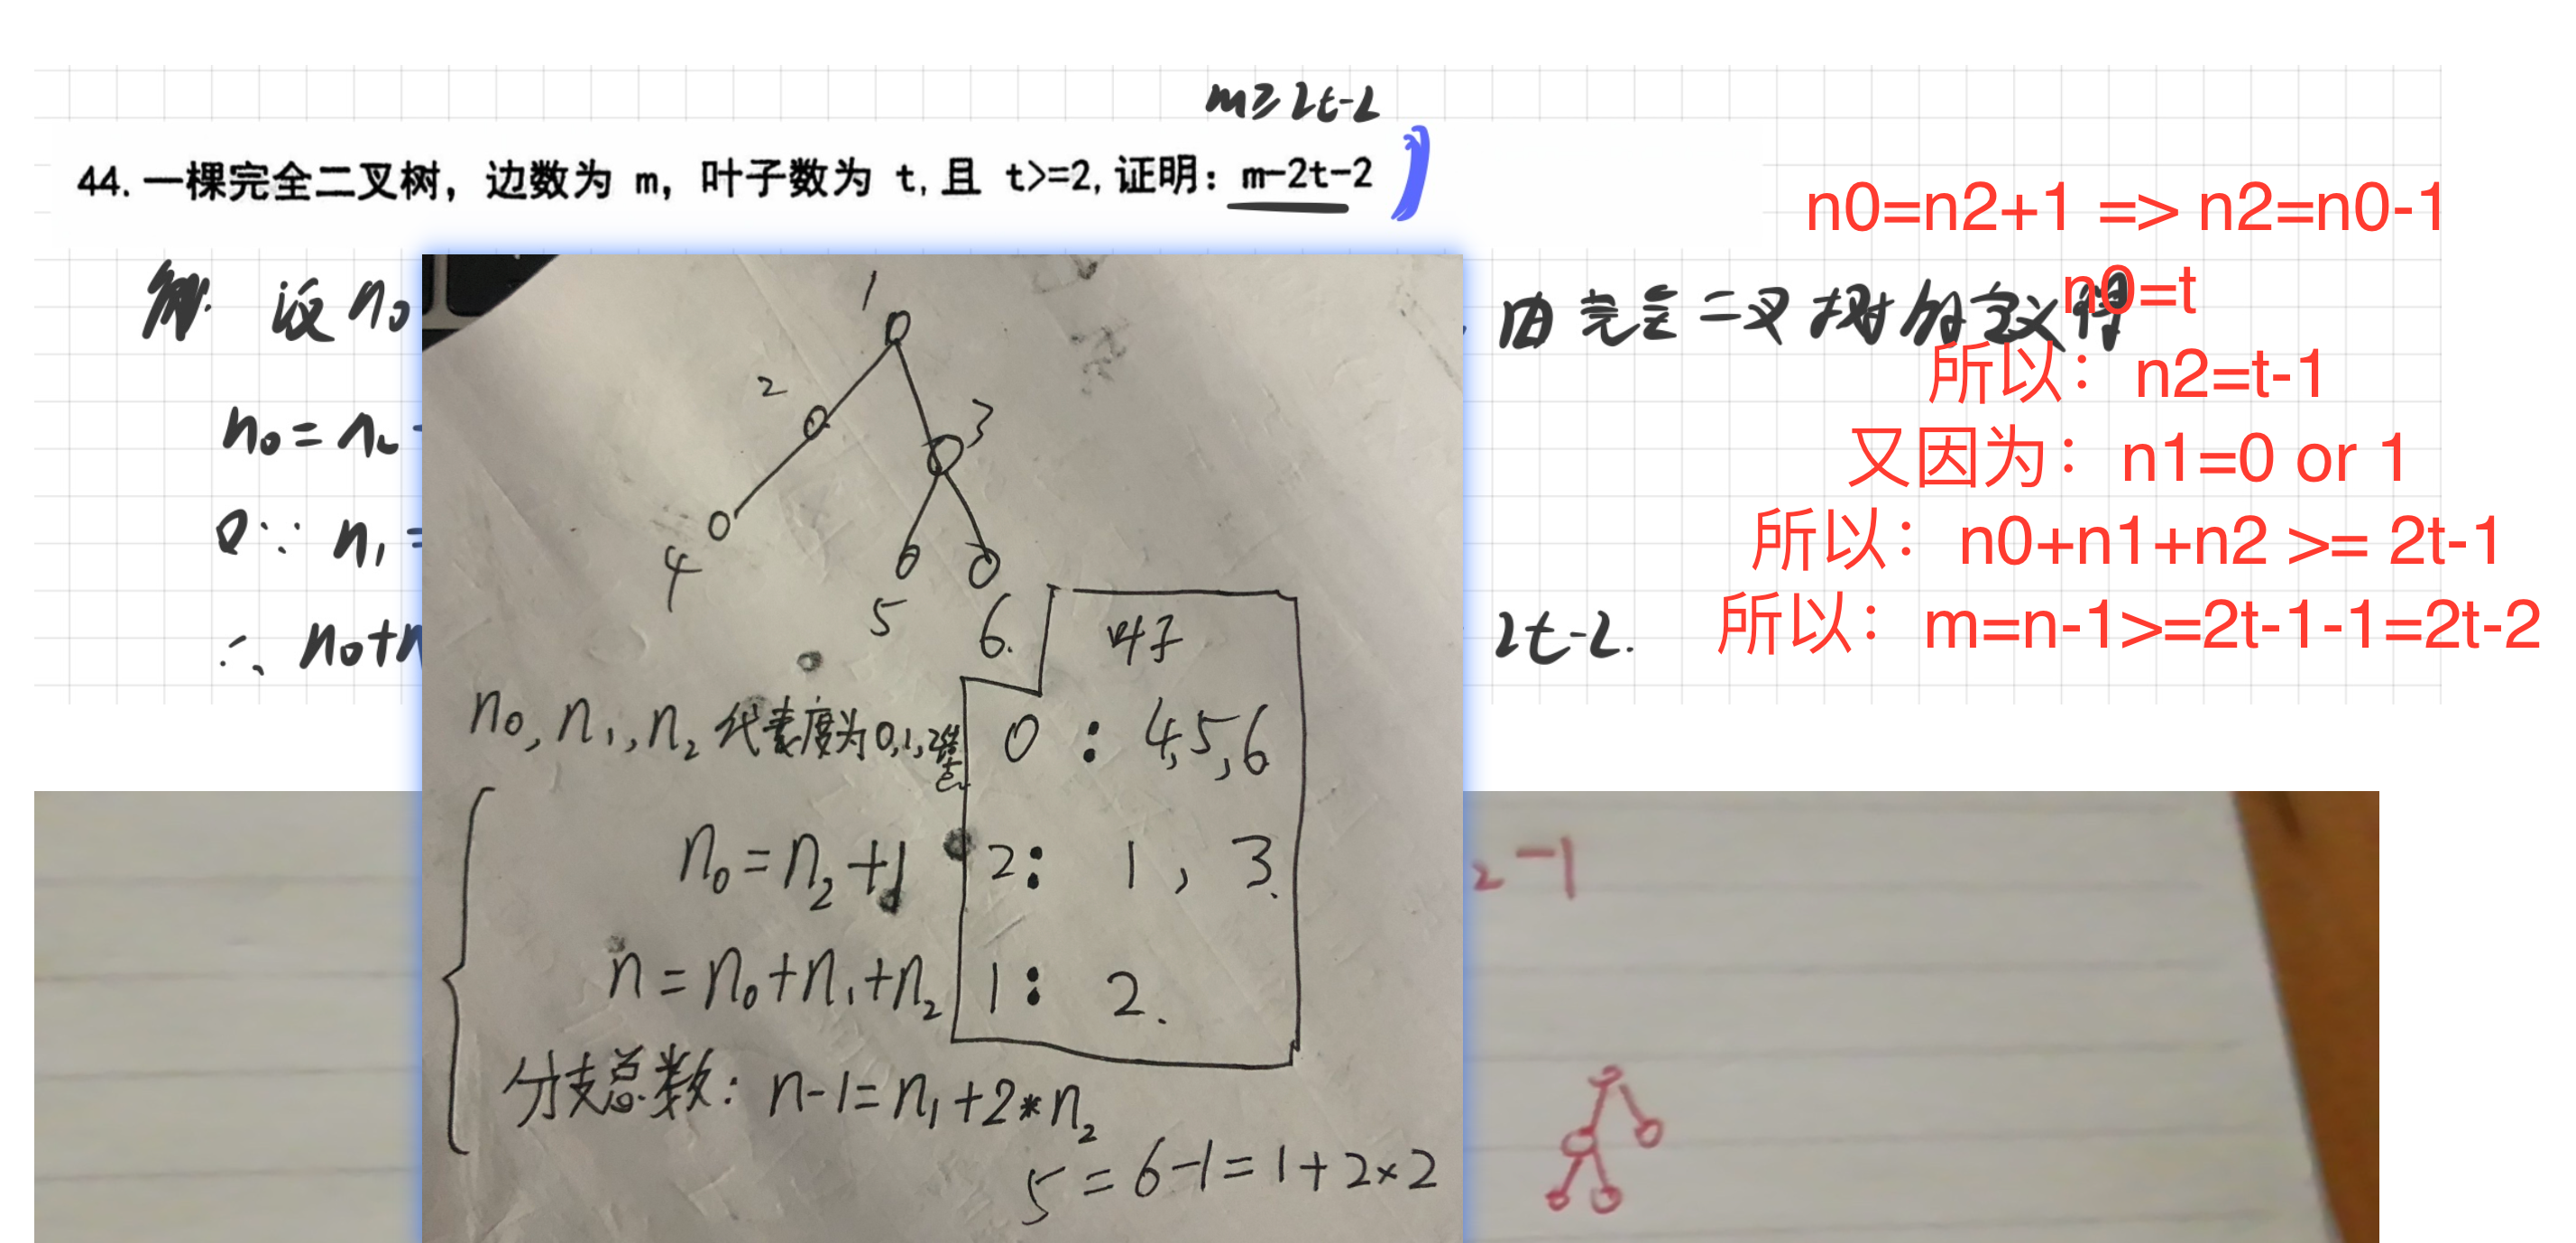 m≥2t-2
44.一棵完全二叉树，边数为 m，叶子数为 t,且 t>=2,证明：m-2t-2
n0=n2+1 => n2=n0-1
解. 设 n₀
由完全二叉树的定义得
n0=t
所以：n2=t-1
n₀=n₂
又因为：n1=0 or 1
又∵ n₁=
所以：n0+n1+n2 >= 2t-1
∴ n₀+n
2t-2.
所以：m=n-1>=2t-1-1=2t-2
1
2
3
4
5
6.
叶子
n₀,n₁,n₂ 代表度为0,1,2
0 : 4,5,6
n₀=n₂+1
2: 1, 3.
n=n₀+n₁+n₂
1: 2.
分支总数: n-1=n₁+2*n₂
5=6-1=1+2×2
₂-1